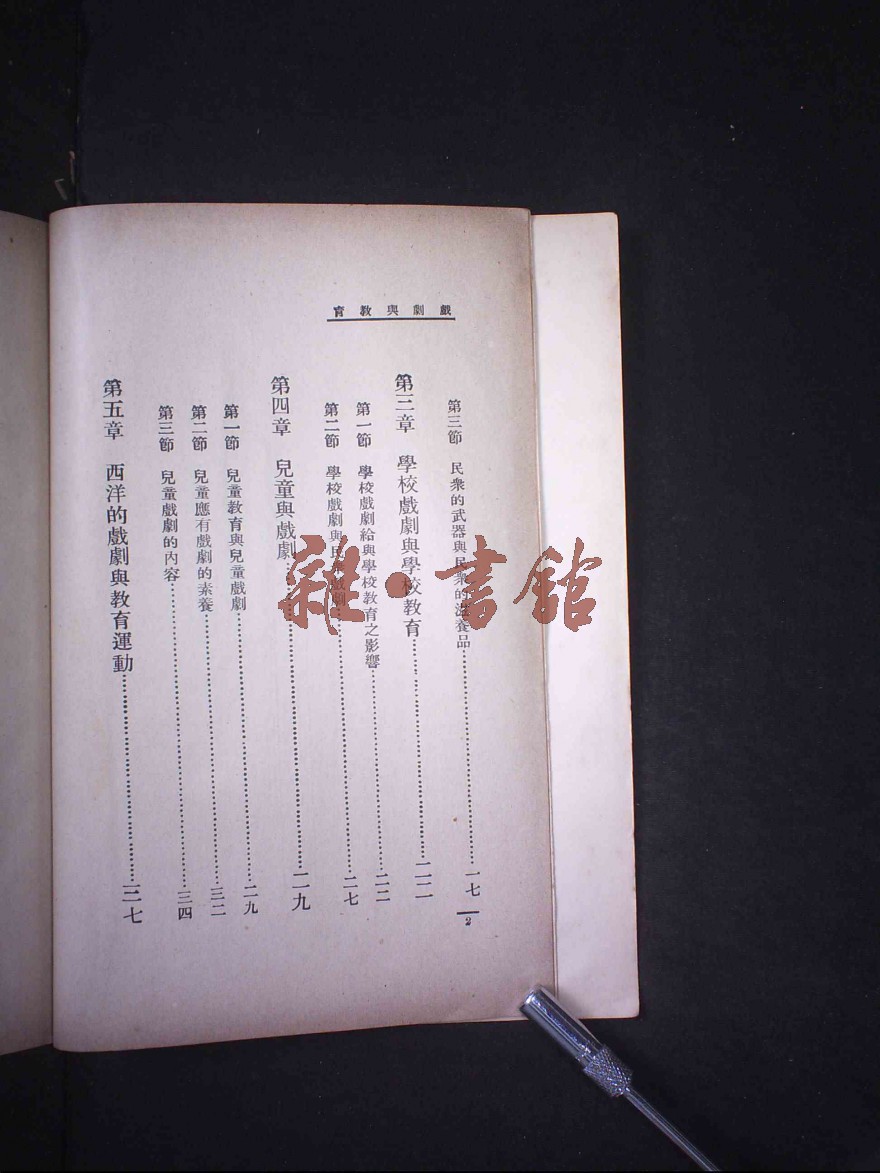 戲劇與教育
第三節　民衆的武器與民衆的滋養品……一七
第三章　學校戲劇與學校教育……二二
第一節　學校戲劇給與學校教育之影響……二二
第二節　學校戲劇與民衆戲劇……二七
第四章　兒童與戲劇……二九
第一節　兒童教育與兒童戲劇……二九
第二節　兒童應有戲劇的素養……三二
第三節　兒童戲劇的內容……三四
第五章　西洋的戲劇與教育運動……三七
2
雜·書館